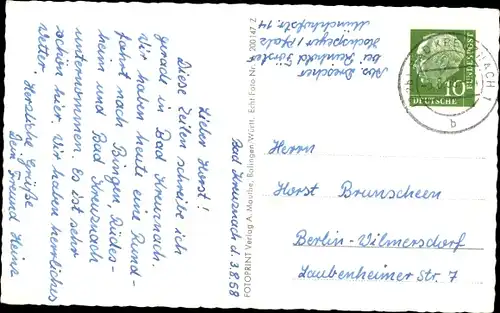 Bad Kreuznach d. 3.8.58
Lieber Horst!
Diese Zeilen schreibe ich
gerade in Bad Kreuznach.
Wir haben heute eine Rund-
fahrt nach Bingen, Rüdes-
heim und Bad Kreuznach
unternommen. Es ist sehr
schön hier. Wir haben herrliches
Wetter.
Herzliche Grüße
Dein Freund Heinz
Abs. Drescher
bei Reinhold Förster
Hochspeyer / Pfalz
Münchhofstr. 14
FOTOPRINT Verlag A. Mauthe, Balingen-Württ. Echt Foto Nr. 200 147 Z
BAD KREUZNACH 1
b
10
DEUTSCHE
BUNDESPOST
Herrn
Horst Brunscheen
Berlin-Wilmersdorf
Laubenheimer Str. 7